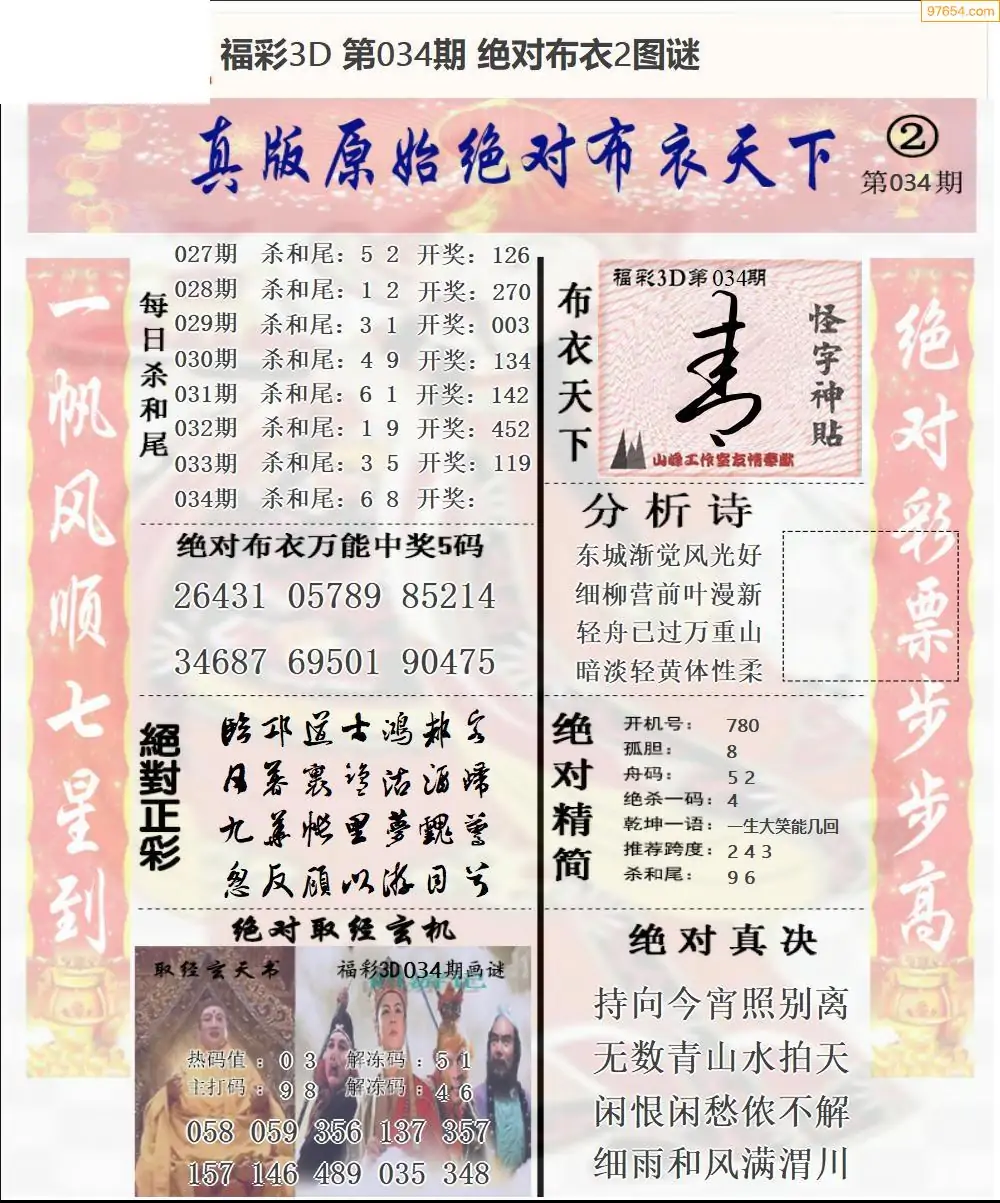 97654.com
福彩3D 第034期 绝对布衣2图谜
真版原始绝对布衣天下
②
第034期
一帆风顺七星到
每日杀和尾
027期 杀和尾：5 2 开奖：126
028期 杀和尾：1 2 开奖：270
029期 杀和尾：3 1 开奖：003
030期 杀和尾：4 9 开奖：134
031期 杀和尾：6 1 开奖：142
032期 杀和尾：1 9 开奖：452
033期 杀和尾：3 5 开奖：119
034期 杀和尾：6 8 开奖：
绝对布衣万能中奖5码
26431 05789 85214
34687 69501 90475
絕對正彩
临邛道士鸿都客
九华帐里梦魂惊
忽反顾以游目兮
绝对取经玄机
取经玄天书
福彩3D034期画谜
热码值：0 3 解冻码：5 1
主打码：9 8 解冻码：4 6
058 059 356 137 357
157 146 489 035 348
布衣天下
福彩3D第034期
怪字神貼
山峰工作室友情奉献
分析诗
东城渐觉风光好
细柳营前叶漫新
轻舟已过万重山
暗淡轻黄体性柔
绝对精简
开机号：780
孤胆：8
舟码：5 2
绝杀一码：4
乾坤一语：一生大笑能几回
推荐跨度：2 4 3
杀和尾：9 6
绝对真决
持向今宵照别离
无数青山水拍天
闲恨闲愁侬不解
细雨和风满渭川
绝对彩票步步高